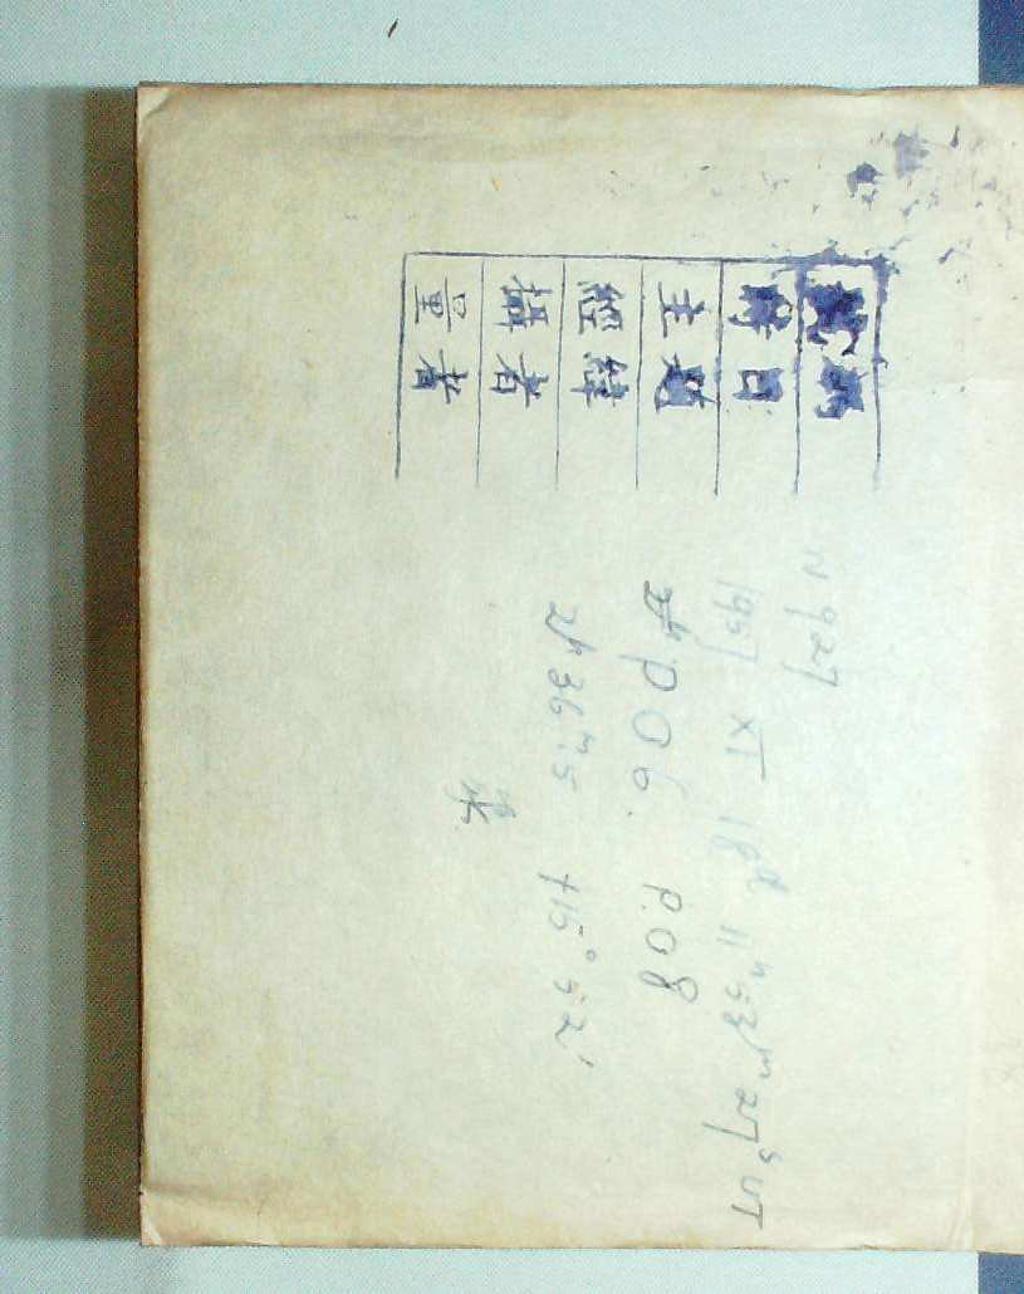 號碼 N 927
時日 1957 XI 18d 11h 53m 27s UT
主題 PO6. P.O8
經緯 2h 36m.5 +15° 52'
攝者
量者